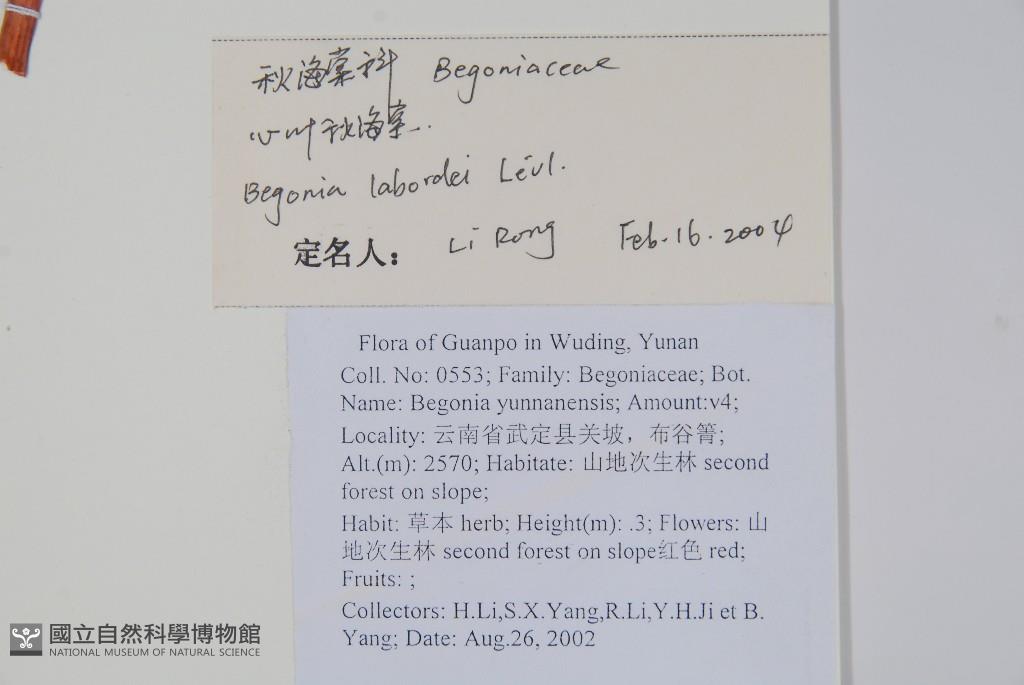 秋海棠科 Begoniaceae
心叶秋海棠.
Begonia labordei Lévl.
定名人： Li Rong Feb.16.2004
Flora of Guanpo in Wuding, Yunan
Coll. No: 0553; Family: Begoniaceae; Bot.
Name: Begonia yunnanensis; Amount:v4;
Locality: 云南省武定县关坡，布谷箐;
Alt.(m): 2570; Habitate: 山地次生林 second
forest on slope;
Habit: 草本 herb; Height(m): .3; Flowers: 山
地次生林 second forest on slope红色 red;
Fruits: ;
Collectors: H.Li,S.X.Yang,R.Li,Y.H.Ji et B.
Yang; Date: Aug.26, 2002
國立自然科學博物館
NATIONAL MUSEUM OF NATURAL SCIENCE